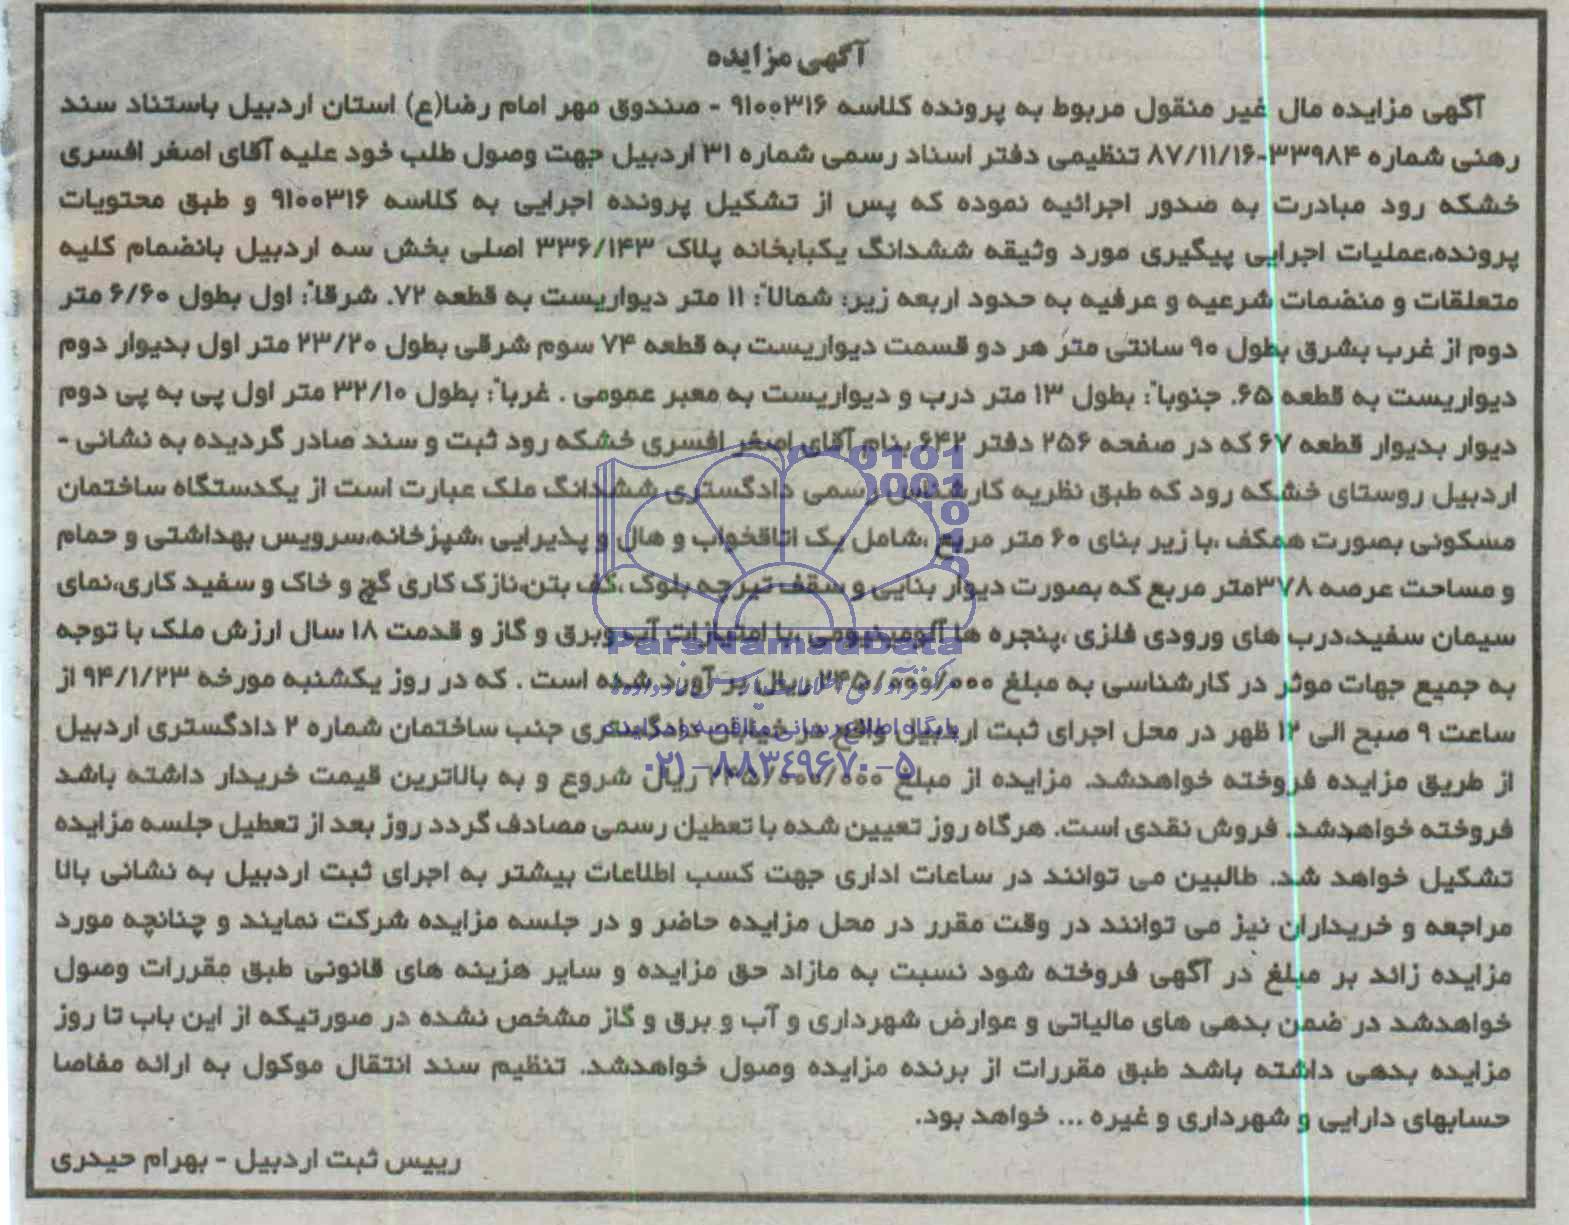 آگهی مزایده
آگهی مزایده مال غیر منقول مربوط به پرونده کلاسه ۹۱۰۰۳۱۶ - صندوق مهر امام رضا(ع) استان اردبیل باستناد سند
رهنی شماره ۳۳۹۸۴-۸۷/۱۱/۱۶ تنظیمی دفتر اسناد رسمی شماره ۳۱ اردبیل جهت وصول طلب خود علیه آقای اصغر افسری
خشکه رود مبادرت به صدور اجرائیه نموده که پس از تشکیل پرونده اجرایی به کلاسه ۹۱۰۰۳۱۶ و طبق محتویات
پرونده،عملیات اجرایی پیگیری مورد وثیقه ششدانگ یکبابخانه پلاک ۳۳۶/۱۴۳ اصلی بخش سه اردبیل بانضمام کلیه
متعلقات و منضمات شرعیه و عرفیه به حدود اربعه زیر: شمالاً: ۱۱ متر دیواریست به قطعه ۷۲. شرقاً: اول بطول ۶/۶۰ متر
دوم از غرب بشرق بطول ۹۰ سانتی متر هر دو قسمت دیواریست به قطعه ۷۴ سوم شرقی بطول ۲۳/۲۰ متر اول بدیوار دوم
دیواریست به قطعه ۶۵. جنوباً: بطول ۱۳ متر درب و دیواریست به معبر عمومی . غرباً: بطول ۳۲/۱۰ متر اول پی به پی دوم
دیوار بدیوار قطعه ۶۷ که در صفحه ۲۵۶ دفتر ۶۴۲ بنام آقای اصغر افسری خشکه رود ثبت و سند صادر گردیده به نشانی -
اردبیل روستای خشکه رود که طبق نظریه کارشناس رسمی دادگستری ششدانگ ملک عبارت است از یکدستگاه ساختمان
مسکونی بصورت همکف ،با زیر بنای ۶۰ متر مربع ،شامل یک اتاقخواب و هال و پذیرایی ،شپزخانه،سرویس بهداشتی و حمام
و مساحت عرصه ۳۷۸متر مربع که بصورت دیوار بنایی و سقف تیرچه بلوک ،کف بتن،نازک کاری گچ و خاک و سفید کاری،نمای
سیمان سفید،درب های ورودی فلزی ،پنجره ها آلومینیومی ،با امتیازات آب وبرق و گاز و قدمت ۱۸ سال ارزش ملک با توجه
به جمیع جهات موثر در کارشناسی به مبلغ ۲۴۵/۰۰۰/۰۰۰ ریال بر آورد شده است . که در روز یکشنبه مورخه ۹۴/۱/۲۳ از
ساعت ۹ صبح الی ۱۲ ظهر در محل اجرای ثبت اردبیل واقع در خیابان دادگستری جنب ساختمان شماره ۲ دادگستری اردبیل
از طریق مزایده فروخته خواهدشد. مزایده از مبلغ ۲۴۵/۰۰۰/۰۰۰ ریال شروع و به بالاترین قیمت خریدار داشته باشد
فروخته خواهدشد. فروش نقدی است. هرگاه روز تعیین شده با تعطیل رسمی مصادف گردد روز بعد از تعطیل جلسه مزایده
تشکیل خواهد شد. طالبین می توانند در ساعات اداری جهت کسب اطلاعات بیشتر به اجرای ثبت اردبیل به نشانی بالا
مراجعه و خریداران نیز می توانند در وقت مقرر در محل مزایده حاضر و در جلسه مزایده شرکت نمایند و چنانچه مورد
مزایده زائد بر مبلغ در آگهی فروخته شود نسبت به مازاد حق مزایده و سایر هزینه های قانونی طبق مقررات وصول
خواهدشد در ضمن بدهی های مالیاتی و عوارض شهرداری و آب و برق و گاز مشخص نشده در صورتیکه از این باب تا روز
مزایده بدهی داشته باشد طبق مقررات از برنده مزایده وصول خواهدشد. تنظیم سند انتقال موکول به ارائه مفاصا
حسابهای دارایی و شهرداری و غیره ... خواهد بود.
رییس ثبت اردبیل - بهرام حیدری
ParsNamadData
پایگاه اطلاع رسانی مناقصه و مزایده
۰۲۱-۸۸۳۴۹۶۷۰-۵